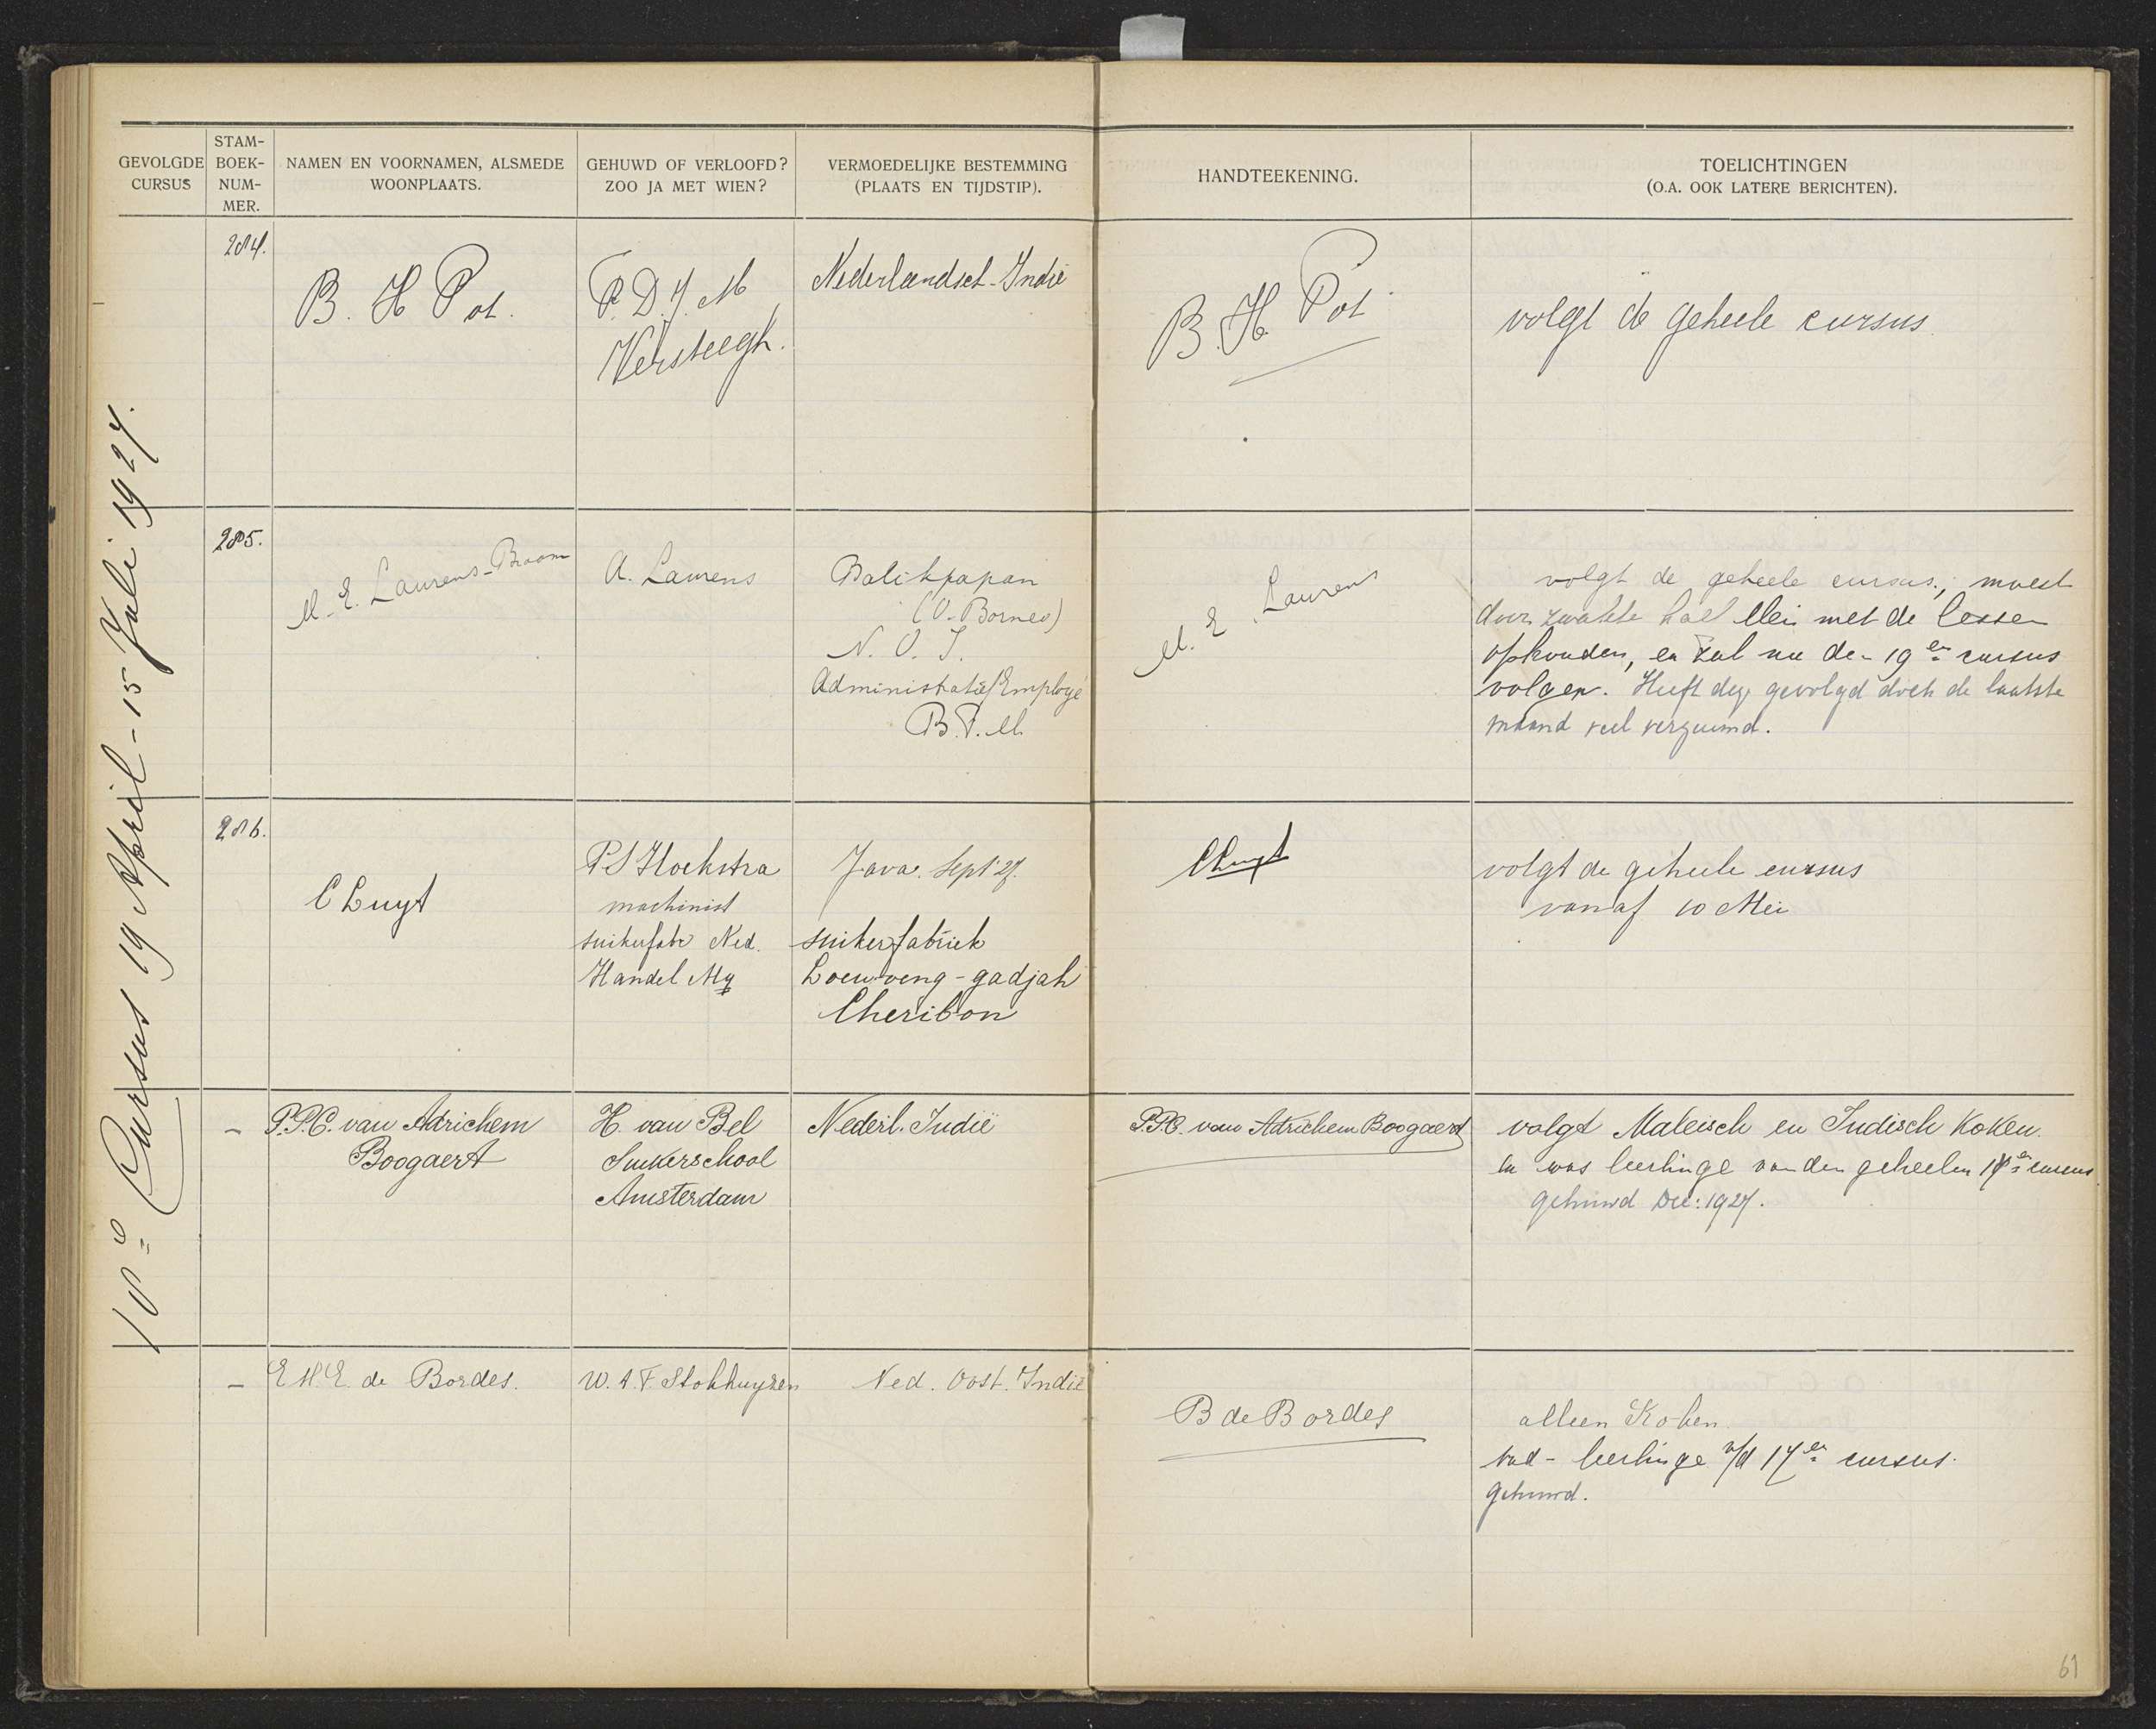 GEVOLGDE CURSUS
STAM-BOEK-NUM-MER.
NAMEN EN VOORNAMEN, ALSMEDE WOONPLAATS.
GEHUWD OF VERLOOFD? ZOO JA MET WIEN?
VERMOEDELIJKE BESTEMMING (PLAATS EN TIJDSTIP).
HANDTEEKENING.
TOELICHTINGEN (O.A. OOK LATERE BERICHTEN).
18e Cursus 19 April - 15 Juli 1927.
284.
B. H Pot.
P. D. J. M
Versteegh.
Nederlandsch-Indië
B. H. Pot
volgt de geheele cursus
285.
M. E. Laurens-Braam
A. Laurens
Balikpapan
(O. Borneo)
N. O. I.
Administratief Employé
B.P.M.
M. E. Laurens
volgt de geheele cursus, moest
door zwakte half Mei met de lessen
ophouden, en zal nu den 19en cursus
volgen. Heeft dez gevolgd doch de laatste
maand veel verzuimd.
286.
C Luyt
P S Hoekstra
machinist
suikerfabr Ned.
Handel My
Java. Sept '27.
suikerfabriek
Loewoeng-gadjah
Cheribon
CLuyt
volgt de geheele cursus
vanaf 10 Mei
- P.P.C. van Adrichem
Boogaert
H. van Bel
Suikerschool
Amsterdam
Nederl. Indië
P.P.C. van Adrichem Boogaert
volgt Maleisch en Indisch Koken.
en was leerlinge van den geheelen 17en cursus
gehuwd Dec: 1927.
- E H.E. de Bordes.
W. A. F. Stokhuyzen
Ned. Oost. Indië
B de Bordes
alleen Koken
oud-leerlinge v/d 17en cursus.
gehuwd.
61